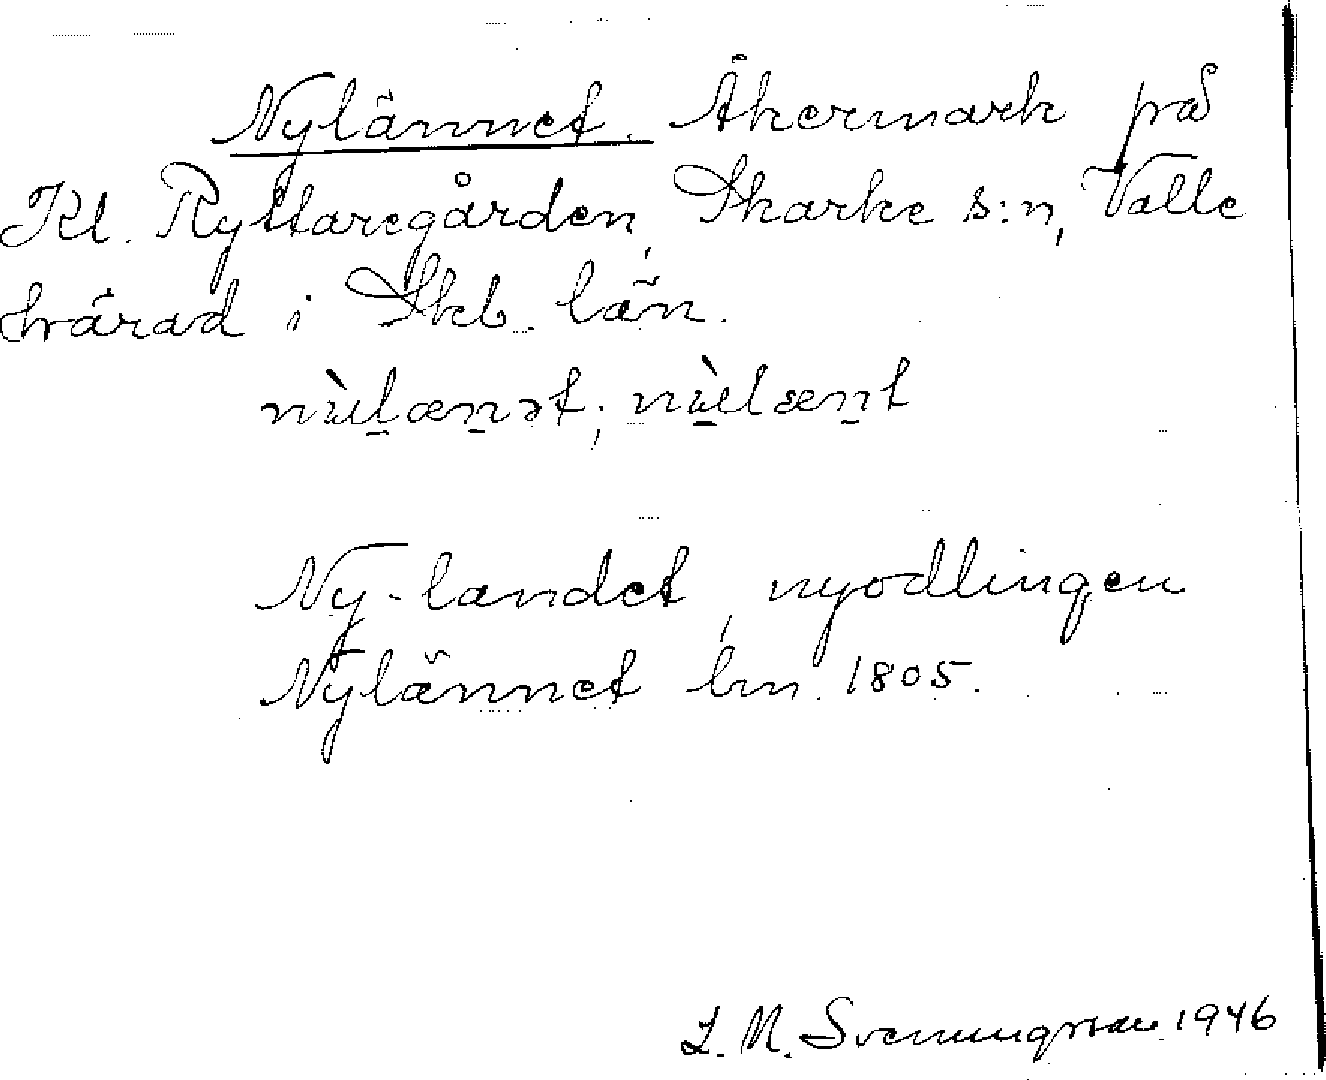 Nylännet. Åkermark på
Kl. Ryttaregården, Skarke s:n, Valle
härad i Skb. län.
nỳlænət; nỳlænt
Ny-landet, nyodlingen
Nylännet bm. 1805.
L. M. Svenungsson 1946